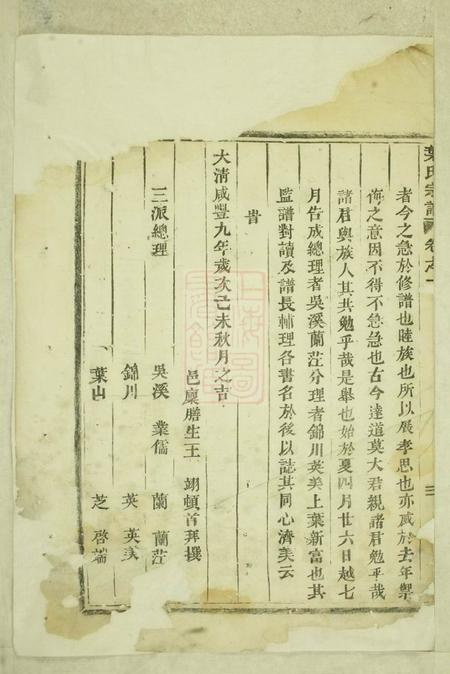 葉氏宗譜 卷之一
者今之急於修譜也睦族也所以展孝思也亦感於去年禦
侮之意因不得不急急也古今達道莫大君親諸君勉乎哉
諸君與族人其共勉乎哉是舉也始於夏四月廿六日越七
月告成總理者吳溪蘭茳分理者錦川英美上葉新富也其
監譜對讀及譜長輔理各書名於後以誌其同心濟美云
旹
大清咸豐九年歲次己未秋月之吉
邑廩膳生王 翊頓首拜撰
三派總理
吳溪 業儒 蘭 蘭茳
錦川 英 英美
葉山 芝 啓端